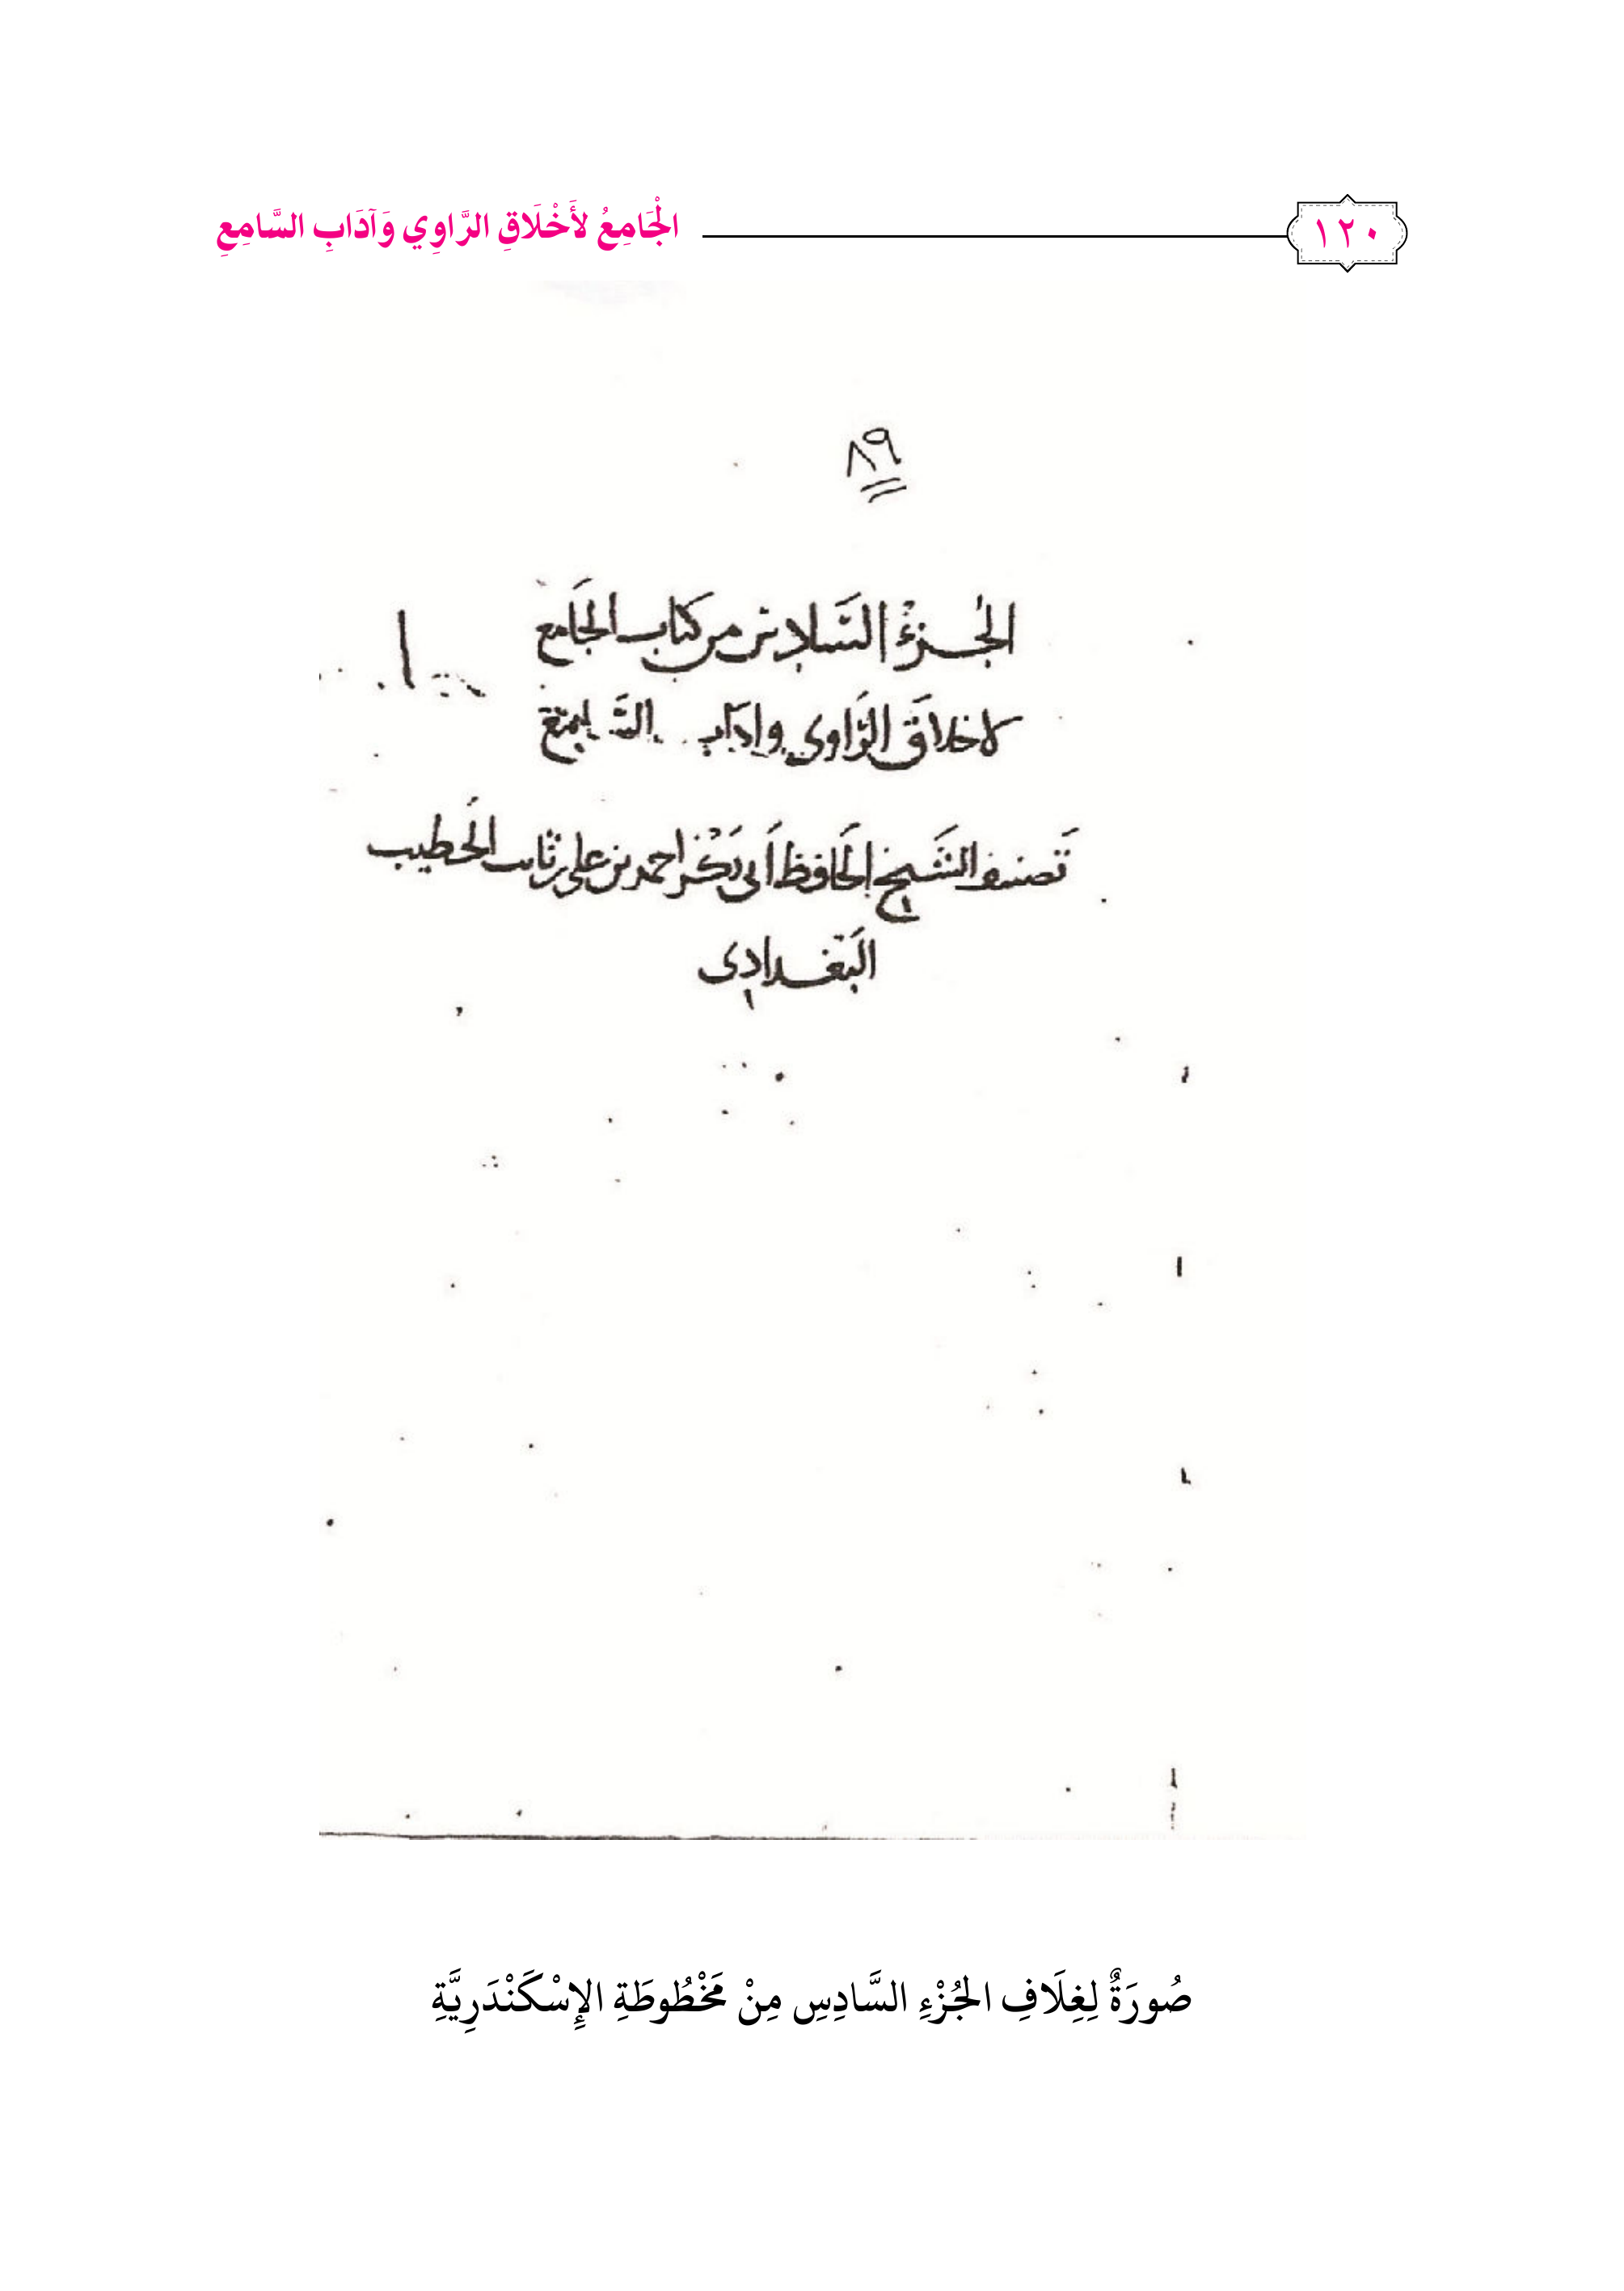 ١٢٠ الْجَامِعُ لأَخْلَاقِ الرَّاوِي وَآدَابِ السَّامِعِ
٨٩
الجزءُ السَّادس من كتاب الجَامع
لاخلاقِ الرَّاوى واداب السَّامع
تَصنيف الشَّيخ الحَافظ أَبى بَكْر احمد بن على بن ثابت الخَطيب
البَغدادى
صُورَةٌ لِغِلَافِ الجُزْءِ السَّادِسِ مِنْ مَخْطُوطَةِ الإِسْكَنْدَرِيَّةِ